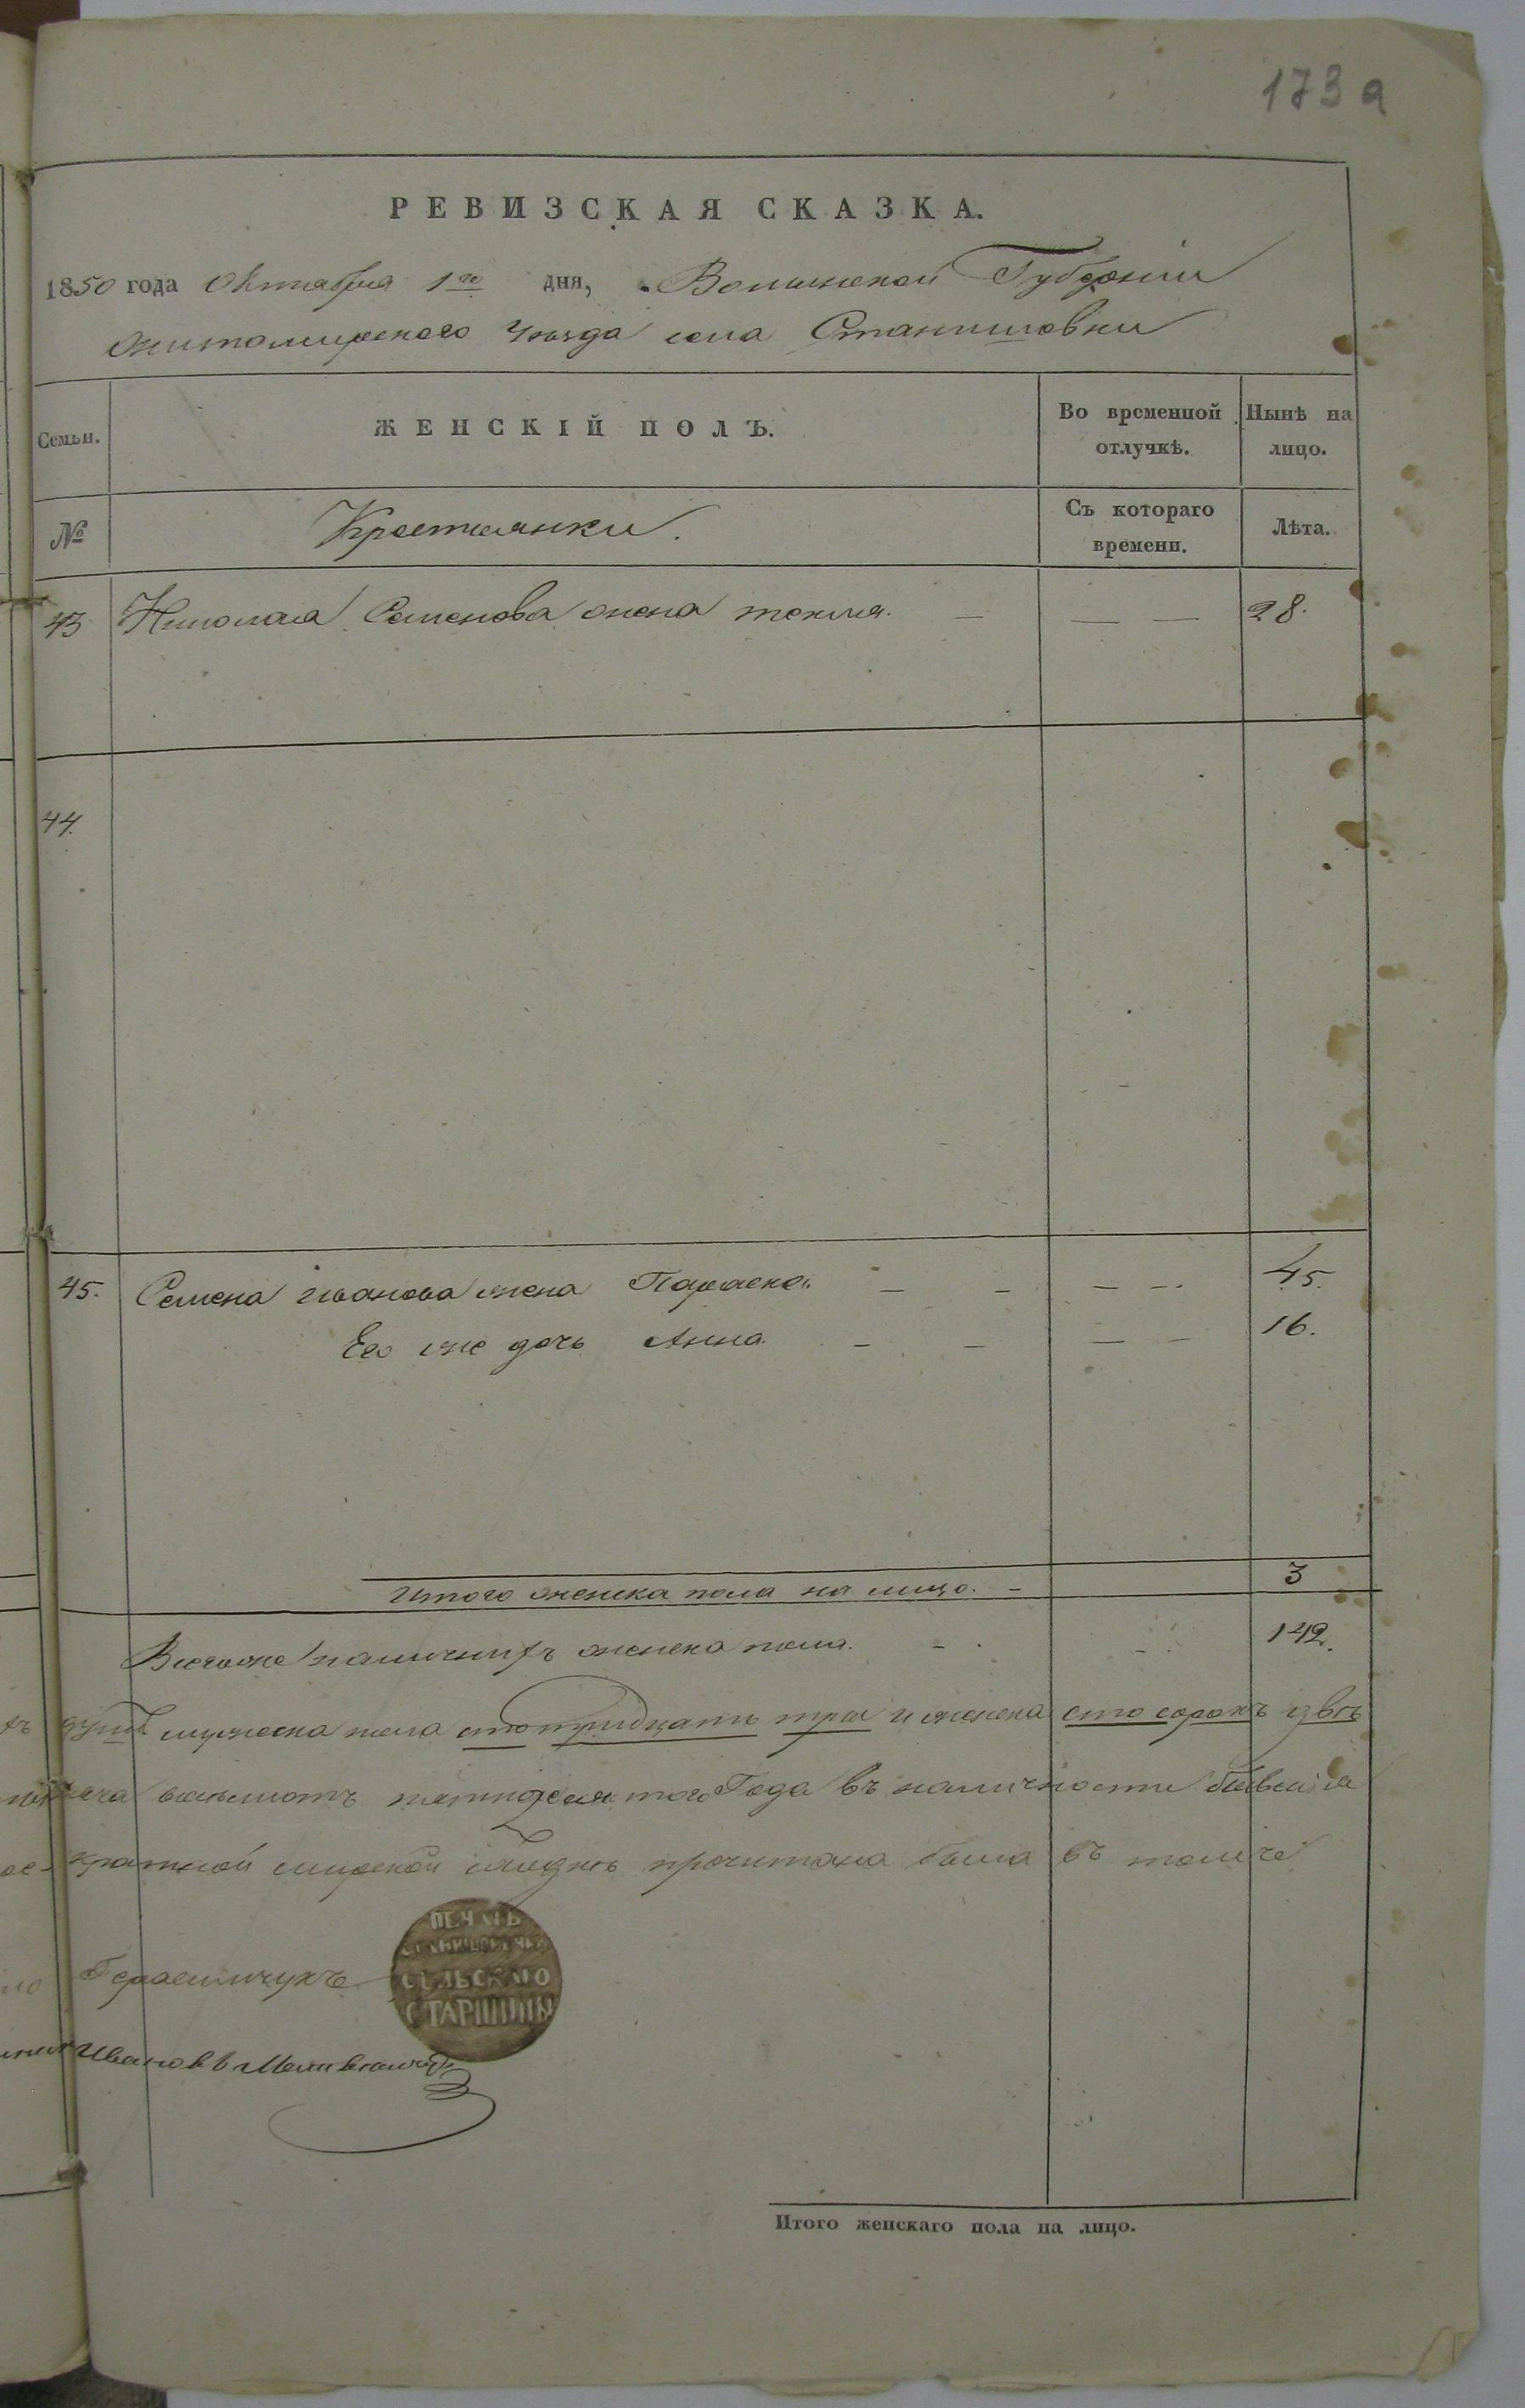 173 а
РЕВИЗСКАЯ СКАЗКА.
1850 года Октября 1го дня, Волынской Губерніи
Житомирского Уѣзда села Станишовки
Семьи. ЖЕНСКІЙ ПОЛЪ. Во временной отлучкѣ. Нынѣ на лицо.
№ Крестьянки. Съ котораго времени. Лѣта.
43 Николая Семенова жена текля. — — — 28.
44.
45. Семена Иванова жена Параска. — — — — 45.
Его же дочь Анна. — — — — 16.
Итого женска пола на лицо. — 3
Всегоже наличнихъ женска пола. — 142.
душъ мужеска пола сто тридцать три и женска сто сорокъ двѣ
восьмотъ пятидесятого Года въ наличности бывшія
кратной мирской сходкѣ прочитана была въ томъ че
Герасимчукъ
ПЕЧАТЬ
СЕЛЬСКАГО
СТАРШИНЫ
Ивановъ
Итого женскаго пола на лицо.